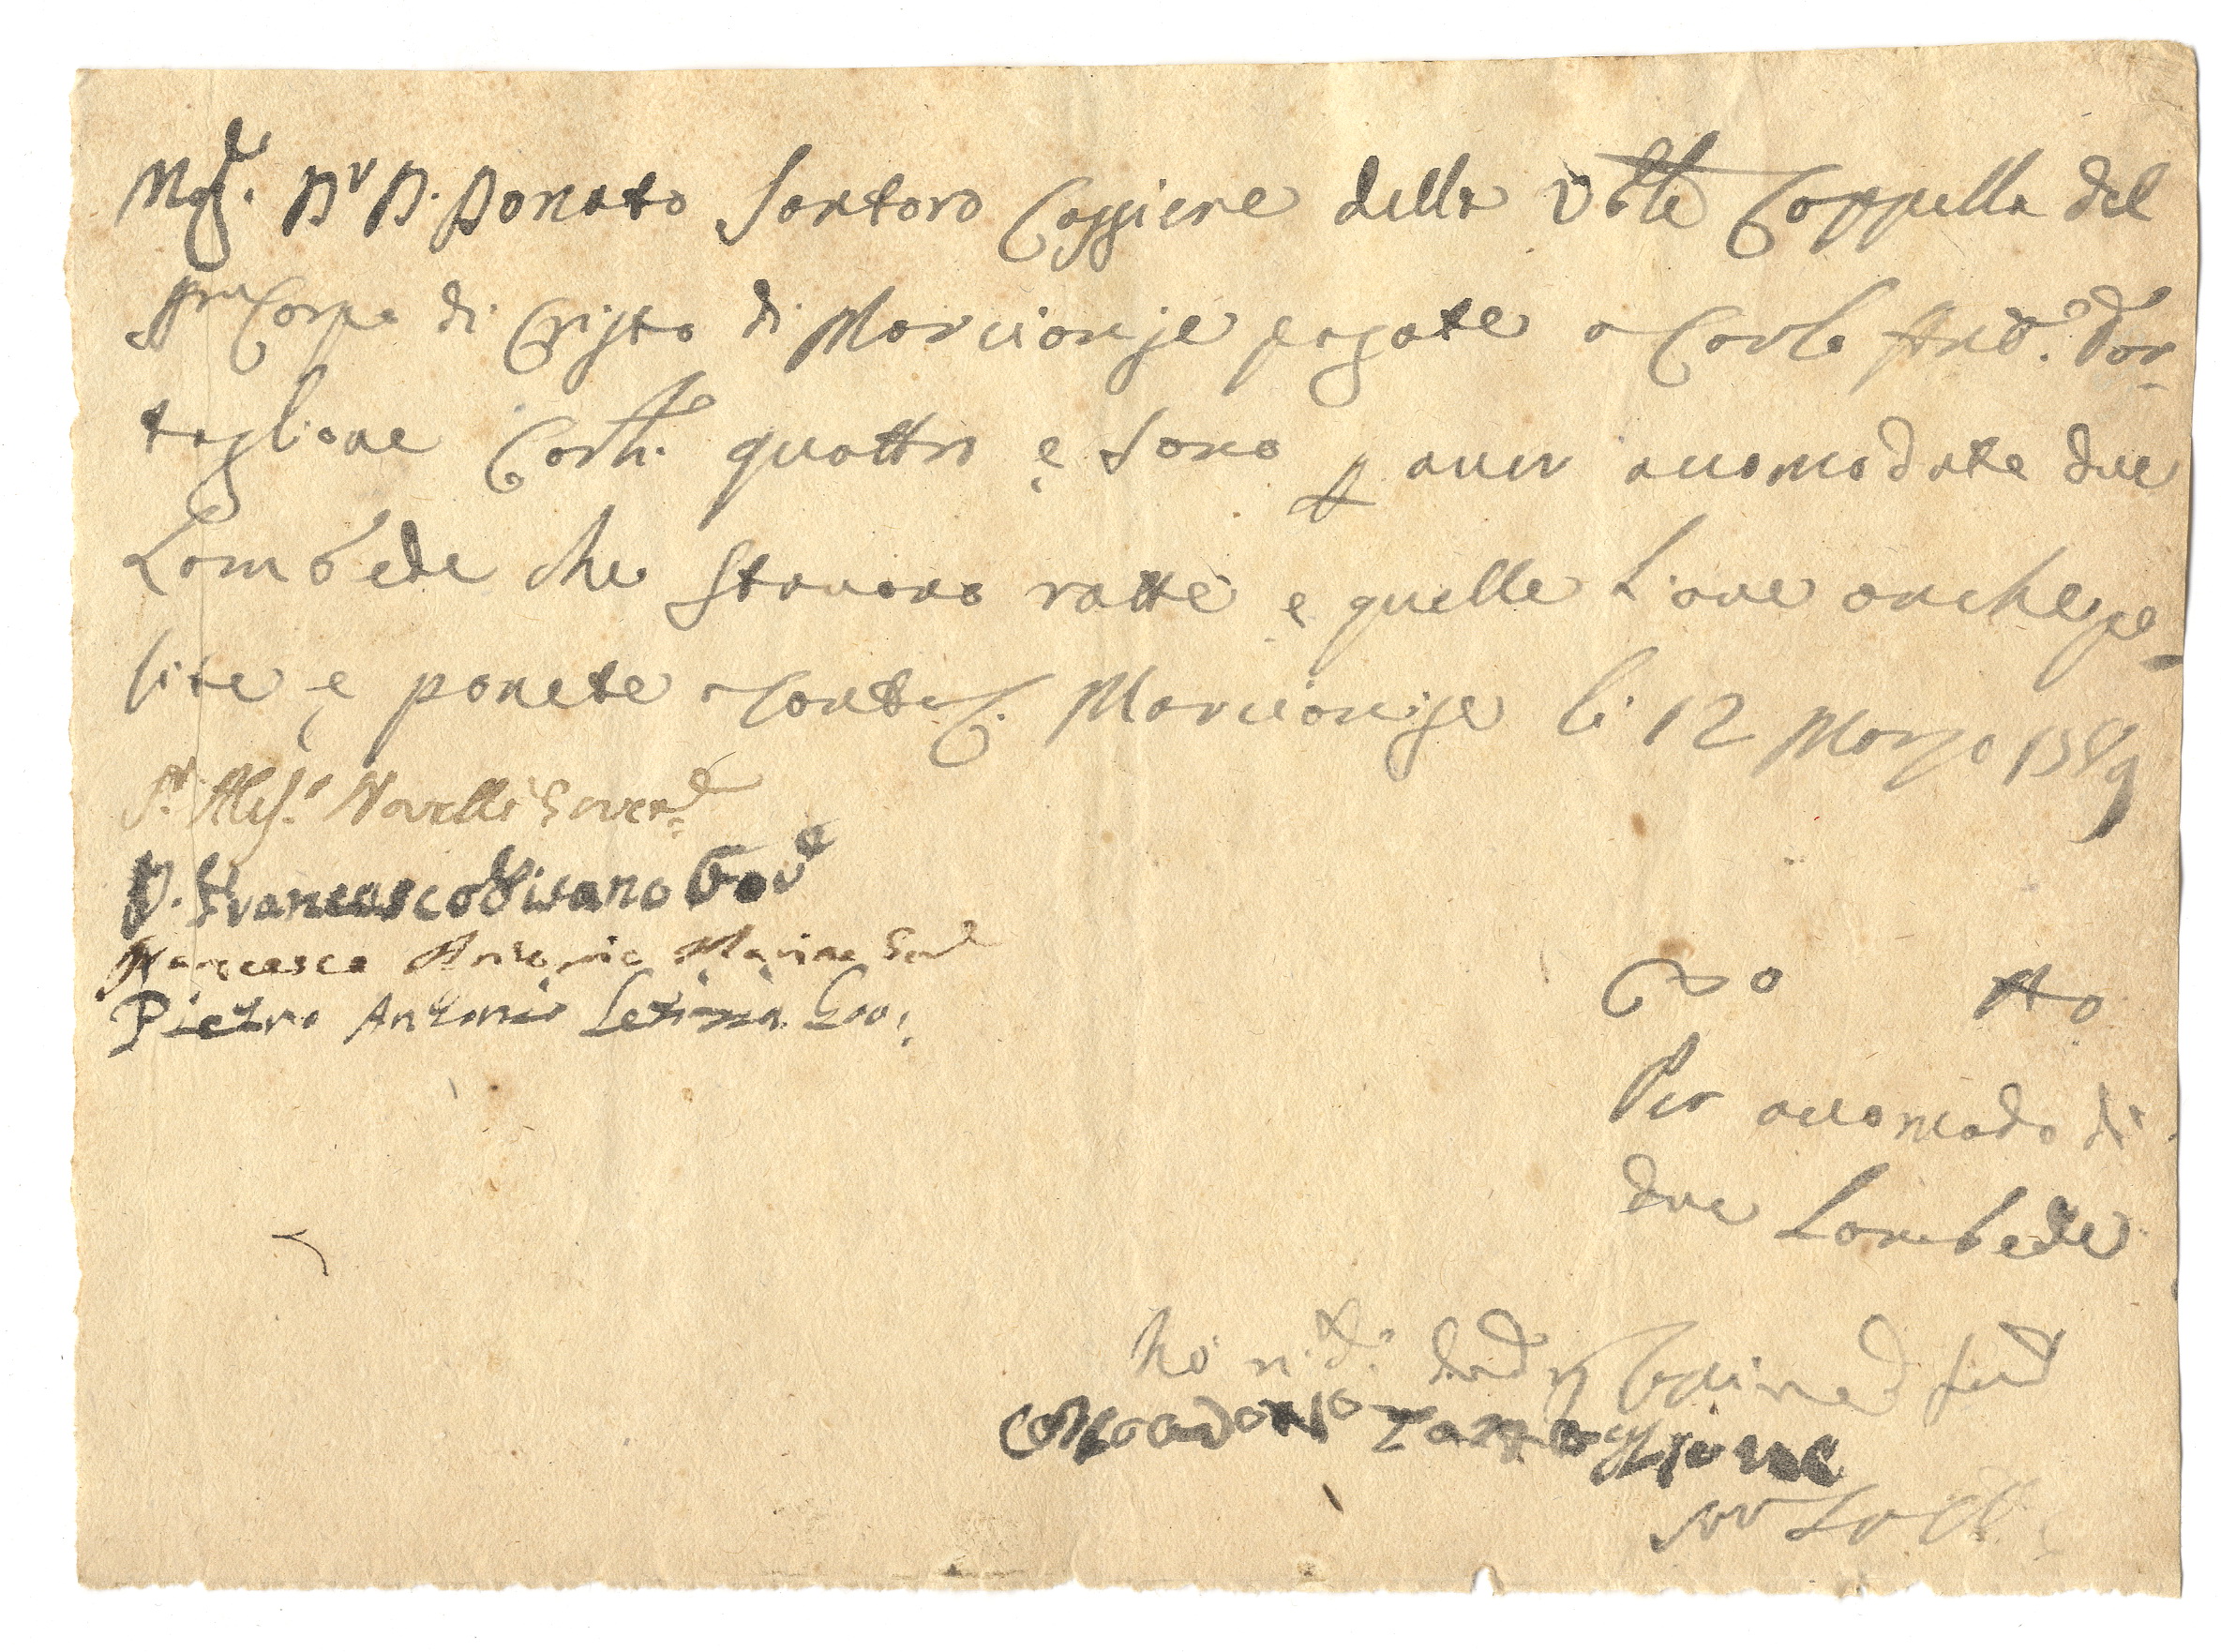 Mag.co D.r D. Donato Santoro Cassiere della V.ble Cappella del
SS.mo Corpo di Cristo di Marcionise pagate a Carlo Ant.o Tar-
taglione Carl.i quattro e sono p aver accomodate due
Lambede che stavano rotte e quelle l'ave anche po-
lite e ponete a conto C. Marcionise li 12 Marzo 1789
Novelli Gover.re
D. Francesco Gov.e
Francesco Antonio Marino Gov.
Pietro Antonio Letizia Gov.
Per accomodo di
due Lambede
Tartaglione